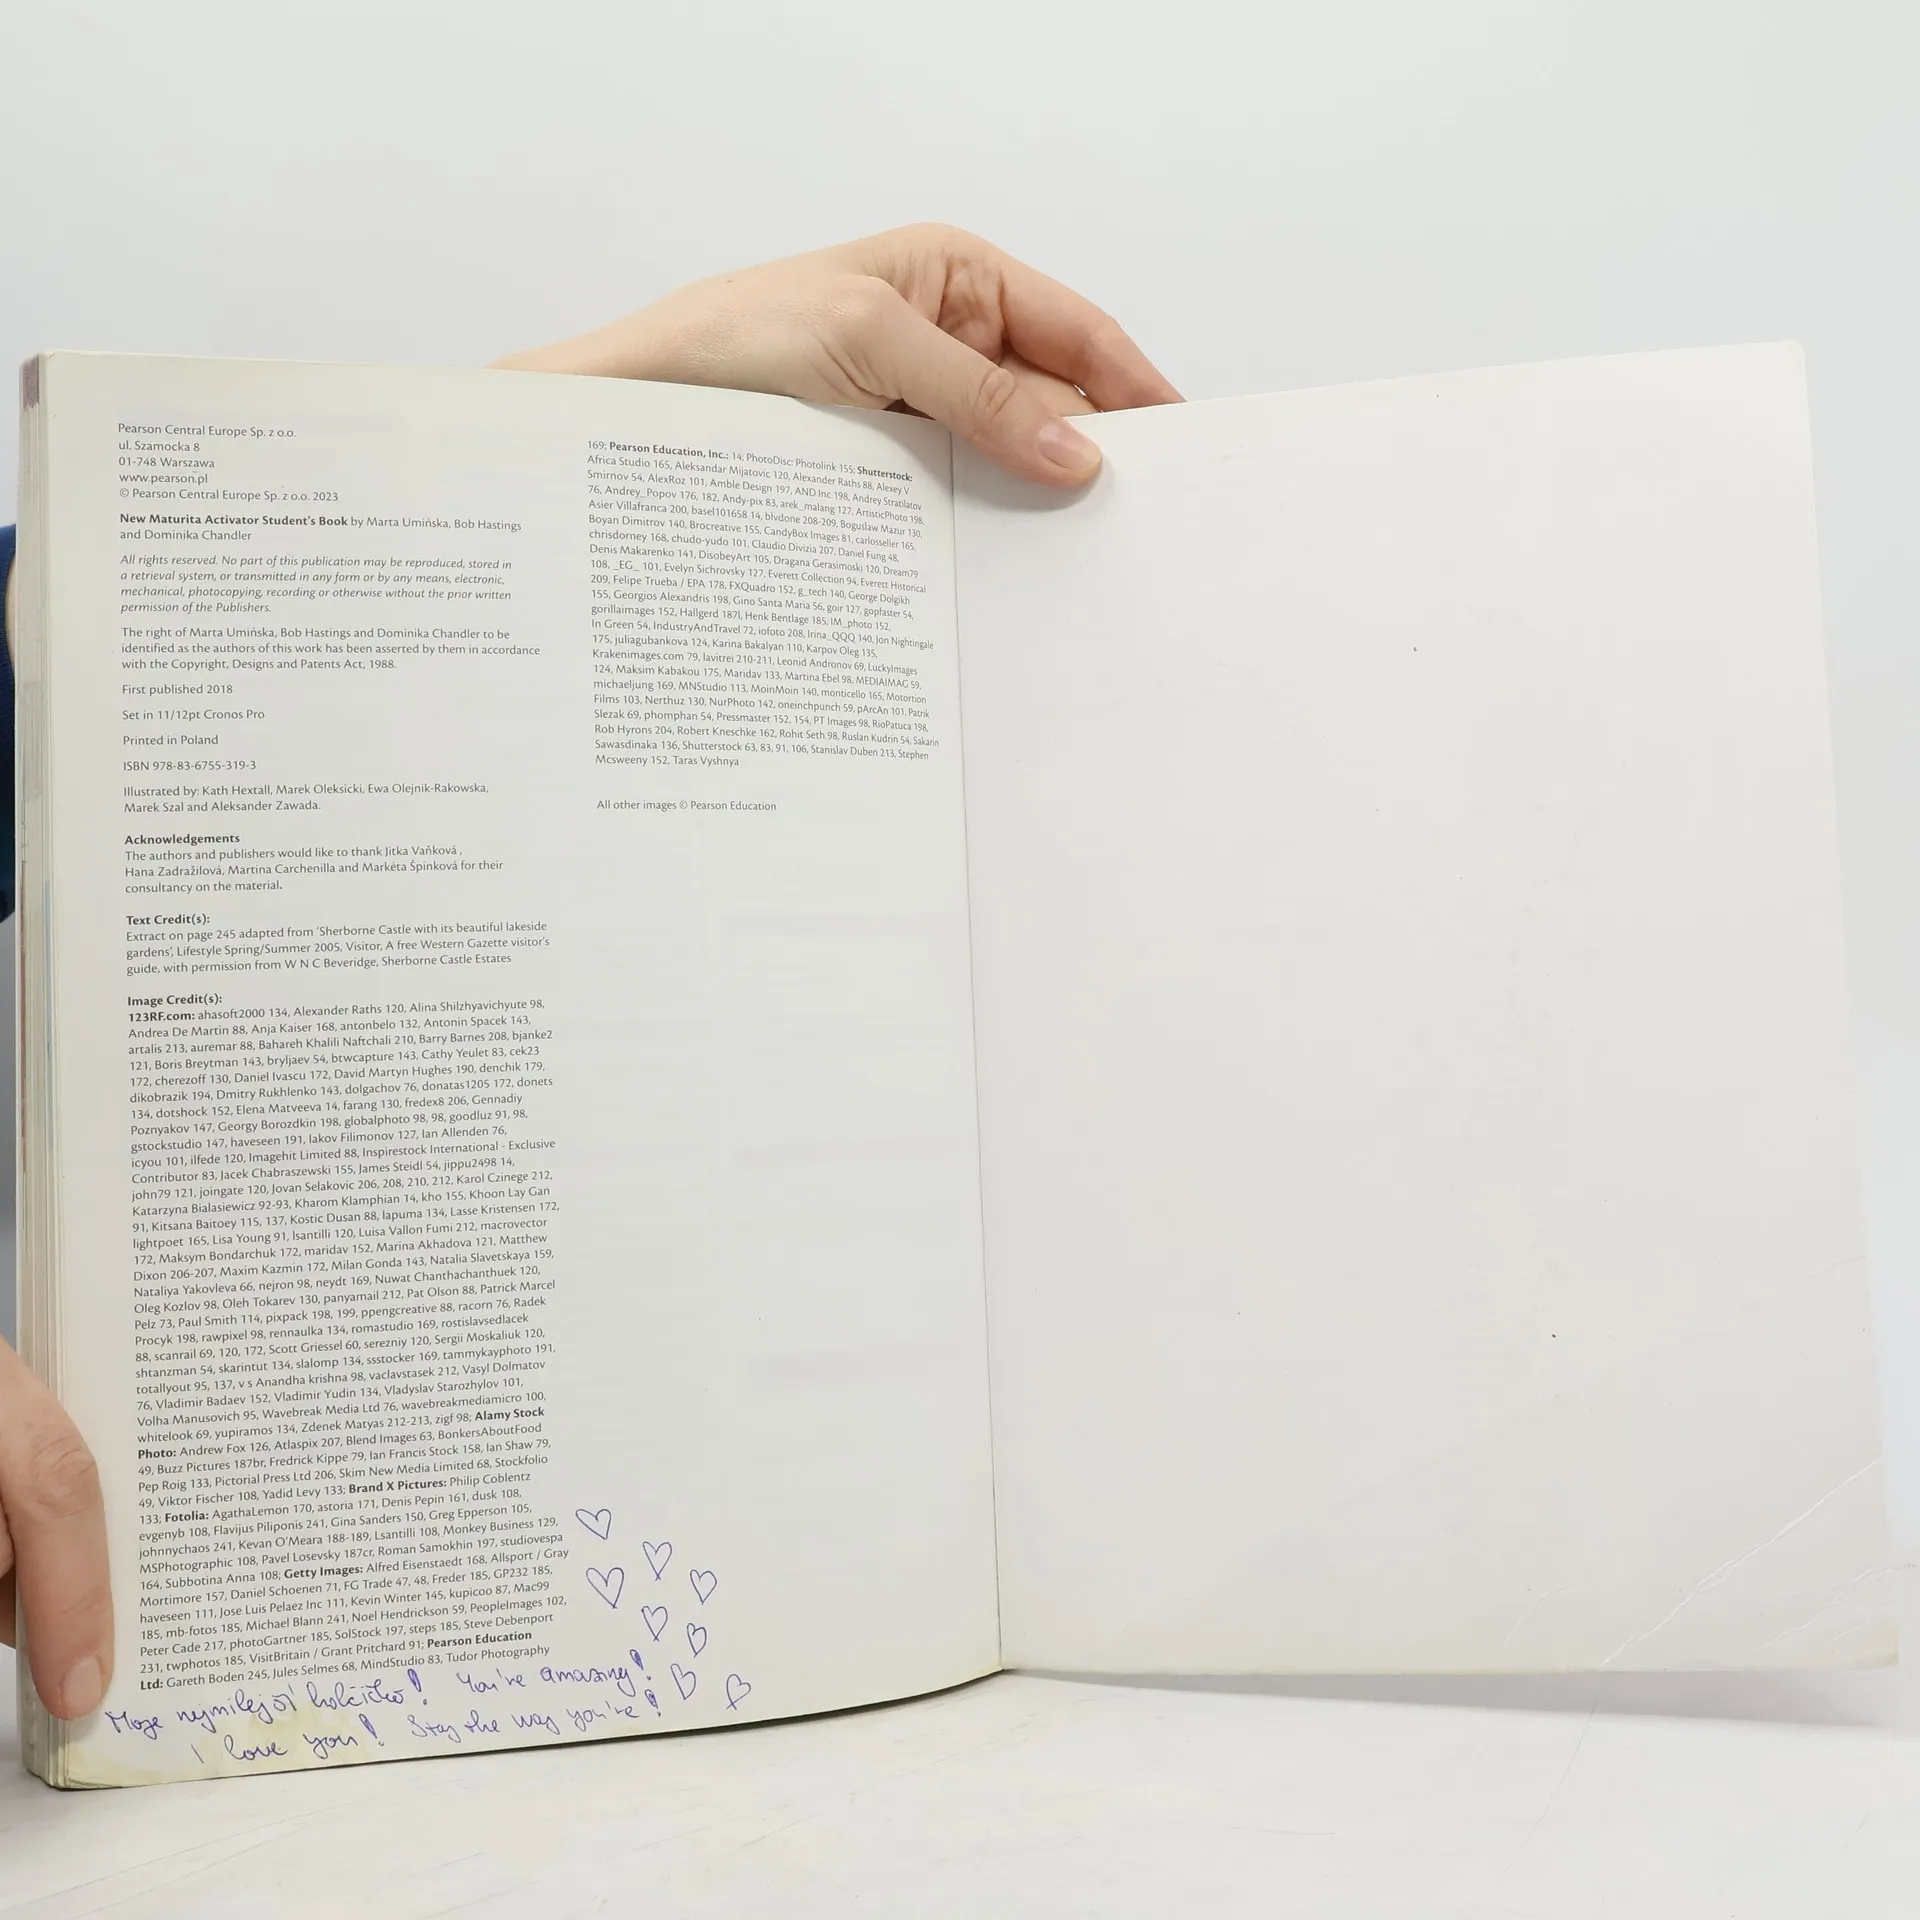 Pearson Central Europe Sp. z o.o.
ul. Szamocka 8
01-748 Warszawa
www.pearson.pl
© Pearson Central Europe Sp. z o.o. 2023
New Maturita Activator Student's Book by Marta Umińska, Bob Hastings
and Dominika Chandler
All rights reserved. No part of this publication may be reproduced, stored in
a retrieval system, or transmitted in any form or by any means, electronic,
mechanical, photocopying, recording or otherwise without the prior written
permission of the Publishers.
The right of Marta Umińska, Bob Hastings and Dominika Chandler to be
identified as the authors of this work has been asserted by them in accordance
with the Copyright, Designs and Patents Act, 1988.
First published 2018
Set in 11/12pt Cronos Pro
Printed in Poland
ISBN 978-83-6755-319-3
Illustrated by: Kath Hextall, Marek Oleksicki, Ewa Olejnik-Rakowska,
Marek Szal and Aleksander Zawada.
Acknowledgements
The authors and publishers would like to thank Jitka Vaňková ,
Hana Zadražilová, Martina Carchenilla and Markéta Špinková for their
consultancy on the material.
Text Credit(s):
Extract on page 245 adapted from 'Sherborne Castle with its beautiful lakeside
gardens', Lifestyle Spring/Summer 2005, Visitor, A free Western Gazette visitor's
guide, with permission from W N C Beveridge, Sherborne Castle Estates
Image Credit(s):
123RF.com: ahasoft2000 134, Alexander Raths 120, Alina Shilzhyavichyute 98,
Andrea De Martin 88, Anja Kaiser 168, antonbelo 132, Antonin Spacek 143,
artalis 213, auremar 88, Bahareh Khalili Naftchali 210, Barry Barnes 208, bjanke2
121, Boris Breytman 143, bryljaev 54, btwcapture 143, Cathy Yeulet 83, cek23
172, cherezoff 130, Daniel Ivascu 172, David Martyn Hughes 190, denchik 179,
dikobrazik 194, Dmitry Rukhlenko 143, dolgachov 76, donatas1205 172, donets
134, dotshock 152, Elena Matveeva 14, farang 130, fredex8 206, Gennadiy
Poznyakov 147, Georgy Borozdkin 198, globalphoto 98, 98, goodluz 91, 98,
gstockstudio 147, haveseen 191, Iakov Filimonov 127, Ian Allenden 76,
icyou 101, ilfede 120, Imagehit Limited 88, Inspirestock International - Exclusive
Contributor 83, Jacek Chabraszewski 155, James Steidl 54, jippu2498 14,
john79 121, joingate 120, Jovan Selakovic 206, 208, 210, 212, Karol Czinege 212,
Katarzyna Bialasiewicz 92-93, Kharom Klamphian 14, kho 155, Khoon Lay Gan
91, Kitsana Baitoey 115, 137, Kostic Dusan 88, lapuma 134, Lasse Kristensen 172,
lightpoet 165, Lisa Young 91, lsantilli 120, Luisa Vallon Fumi 212, macrovector
172, Maksym Bondarchuk 172, maridav 152, Marina Akhadova 121, Matthew
Dixon 206-207, Maxim Kazmin 172, Milan Gonda 143, Natalia Slavetskaya 159,
Nataliya Yakovleva 66, nejron 98, neydt 169, Nuwat Chanthachanthuek 120,
Oleg Kozlov 98, Oleh Tokarev 130, panyamail 212, Pat Olson 88, Patrick Marcel
Pelz 73, Paul Smith 114, pixpack 198, 199, ppengcreative 88, racorn 76, Radek
Procyk 198, rawpixel 98, rennaulka 134, romastudio 169, rostislavsedlacek
88, scanrail 69, 120, 172, Scott Griessel 60, serezniy 120, Sergii Moskaliuk 120,
shtanzman 54, skarintut 134, slalomp 134, ssstocker 169, tammykayphoto 191,
totallyout 95, 137, v s Anandha krishna 98, vaclavstasek 212, Vasyl Dolmatov
76, Vladimir Badaev 152, Vladimir Yudin 134, Vladyslav Starozhylov 101,
Volha Manusovich 95, Wavebreak Media Ltd 76, wavebreakmediamicro 100,
whitelook 69, yupiramos 134, Zdenek Matyas 212-213, zigf 98; Alamy Stock
Photo: Andrew Fox 126, Atlaspix 207, Blend Images 63, BonkersAboutFood
49, Buzz Pictures 187br, Fredrick Kippe 79, Ian Francis Stock 158, Ian Shaw 79,
Pep Roig 133, Pictorial Press Ltd 206, Skim New Media Limited 68, Stockfolio
49, Viktor Fischer 108, Yadid Levy 133; Brand X Pictures: Philip Coblentz
133; Fotolia: AgathaLemon 170, astoria 171, Denis Pepin 161, dusk 108,
evgenyb 108, Flavijus Piliponis 241, Gina Sanders 150, Greg Epperson 105,
johnnychaos 241, Kevan O'Meara 188-189, Lsantilli 108, Monkey Business 129,
MSPhotographic 108, Pavel Losevsky 187cr, Roman Samokhin 197, studiovespa
164, Subbotina Anna 108; Getty Images: Alfred Eisenstaedt 168, Allsport / Gray
Mortimore 157, Daniel Schoenen 71, FG Trade 47, 48, Freder 185, GP232 185,
haveseen 111, Jose Luis Pelaez Inc 111, Kevin Winter 145, kupicoo 87, Mac99
185, mb-fotos 185, Michael Blann 241, Noel Hendrickson 59, PeopleImages 102,
Peter Cade 217, photoGartner 185, SolStock 197, steps 185, Steve Debenport
231, twphotos 185, VisitBritain / Grant Pritchard 91; Pearson Education
Ltd: Gareth Boden 245, Jules Selmes 68, MindStudio 83, Tudor Photography
169; Pearson Education, Inc.: 14; PhotoDisc: Photolink 155; Shutterstock:
Africa Studio 165, Aleksandar Mijatovic 120, Alexander Raths 88, Alexey V
Smirnov 54, AlexRoz 101, Amble Design 197, AND Inc 198, Andrey Stratilatov
76, Andrey_Popov 176, 182, Andy-pix 83, arek_malang 127, ArtisticPhoto 198,
Asier Villafranca 200, basel101658 14, blvdone 208-209, Boguslaw Mazur 130,
Boyan Dimitrov 140, Brocreative 155, CandyBox Images 81, carlosseller 165,
chrisdorney 168, chudo-yudo 101, Claudio Divizia 207, Daniel Fung 48,
Denis Makarenko 141, DisobeyArt 105, Dragana Gerasimoski 120, Dream79
108, _EG_ 101, Evelyn Sichrovsky 127, Everett Collection 94, Everett Historical
209, Felipe Trueba / EPA 178, FXQuadro 152, g_tech 140, George Dolgikh
155, Georgios Alexandris 198, Gino Santa Maria 56, goir 127, gopfaster 54,
gorillaimages 152, Hallgerd 187l, Henk Bentlage 185, IM_photo 152,
In Green 54, IndustryAndTravel 72, iofoto 208, Irina_QQQ 140, Jon Nightingale
175, juliagubankova 124, Karina Bakalyan 110, Karpov Oleg 135,
Krakenimages.com 79, lavitrei 210-211, Leonid Andronov 69, LuckyImages
124, Maksim Kabakou 175, Maridav 133, Martina Ebel 98, MEDIAIMAG 59,
michaeljung 169, MNStudio 113, MoinMoin 140, monticello 165, Motortion
Films 103, Nerthuz 130, NurPhoto 142, oneinchpunch 59, pArcAn 101, Patrik
Slezak 69, phomphan 54, Pressmaster 152, 154, PT Images 98, RioPatuca 198,
Rob Hyrons 204, Robert Kneschke 162, Rohit Seth 98, Ruslan Kudrin 54, Sakarin
Sawasdinaka 136, Shutterstock 63, 83, 91, 106, Stanislav Duben 213, Stephen
Mcsweeny 152, Taras Vyshnya
All other images © Pearson Education
Moje nejmilejší holčičko! You're amazing!
I love you! Stay the way you're!